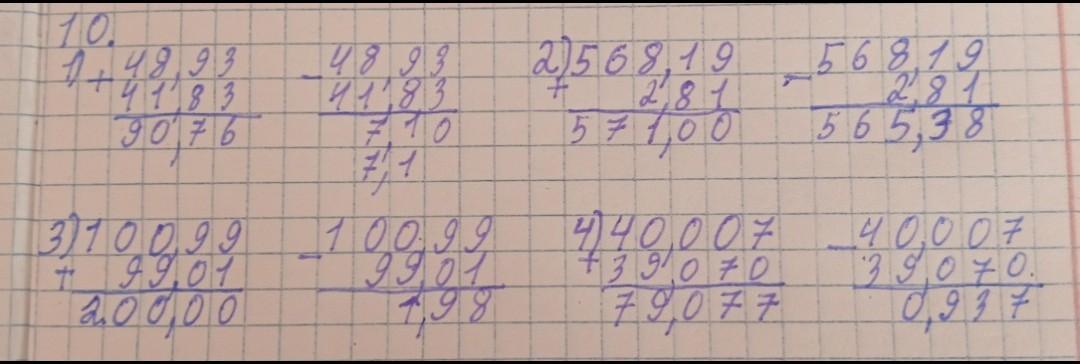 10.
1) + 48,93 - 48,93 2) 568,19 - 568,19
41,83 41,83 + 2,81 2,81
90,76 7,10 571,00 565,38
7,1
3) 100,99 - 100,99 4) 40,007 - 40,007
+ 99,01 99,01 + 39,070 39,070
200,00 1,98 79,077 0,937